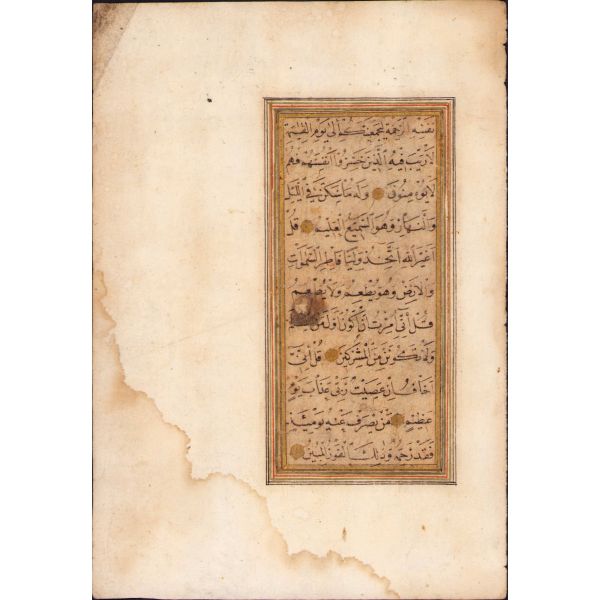 نَفْسِهِ الرَّحْمَةَ لَيَجْمَعَنَّكُمْ إِلَى يَوْمِ الْقِيٰمَةِ
لَا رَيْبَ فِيهِ الَّذِينَ خَسِرُوا أَنْفُسَهُمْ فَهُمْ
لَا يُؤْمِنُونَ وَلَهُ مَا سَكَنَ فِي اللَّيْلِ
وَالنَّهَارِ وَهُوَ السَّمِيعُ الْعَلِيمُ قُلْ
أَغَيْرَ اللهِ أَتَّخِذُ وَلِيًّا فَاطِرِ السَّمٰوَاتِ
وَالْأَرْضِ وَهُوَ يُطْعِمُ وَلَا يُطْعَمُ
قُلْ إِنِّي أُمِرْتُ أَنْ أَكُونَ أَوَّلَ مَنْ
وَلَا تَكُونَنَّ مِنَ الْمُشْرِكِينَ قُلْ إِنِّي
أَخَافُ إِنْ عَصَيْتُ رَبِّي عَذَابَ يَوْمٍ
عَظِيمٍ مَنْ يُصْرَفْ عَنْهُ يَوْمَئِذٍ
فَقَدْ رَحِمَهُ وَذٰلِكَ الْفَوْزُ الْمُبِينُ